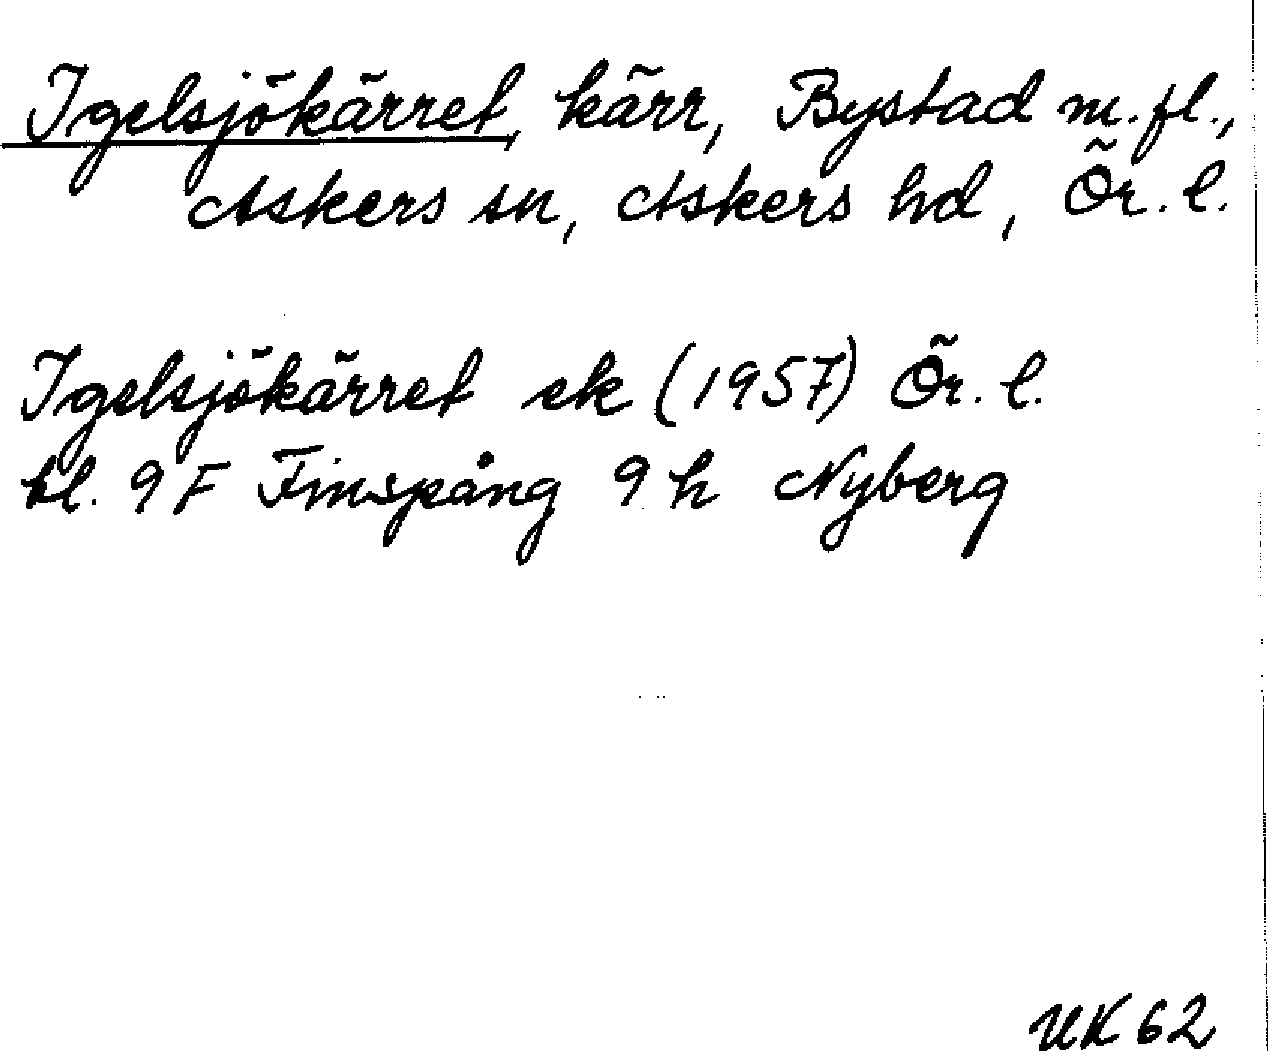 Igelsjökärret, kärr, Bystad m.fl.,
Askers sn, Askers hd, Ör. l.
Igelsjökärret ek (1957) Ör. l.
bl. 9F Finspång 9h Nyberg
UK 62